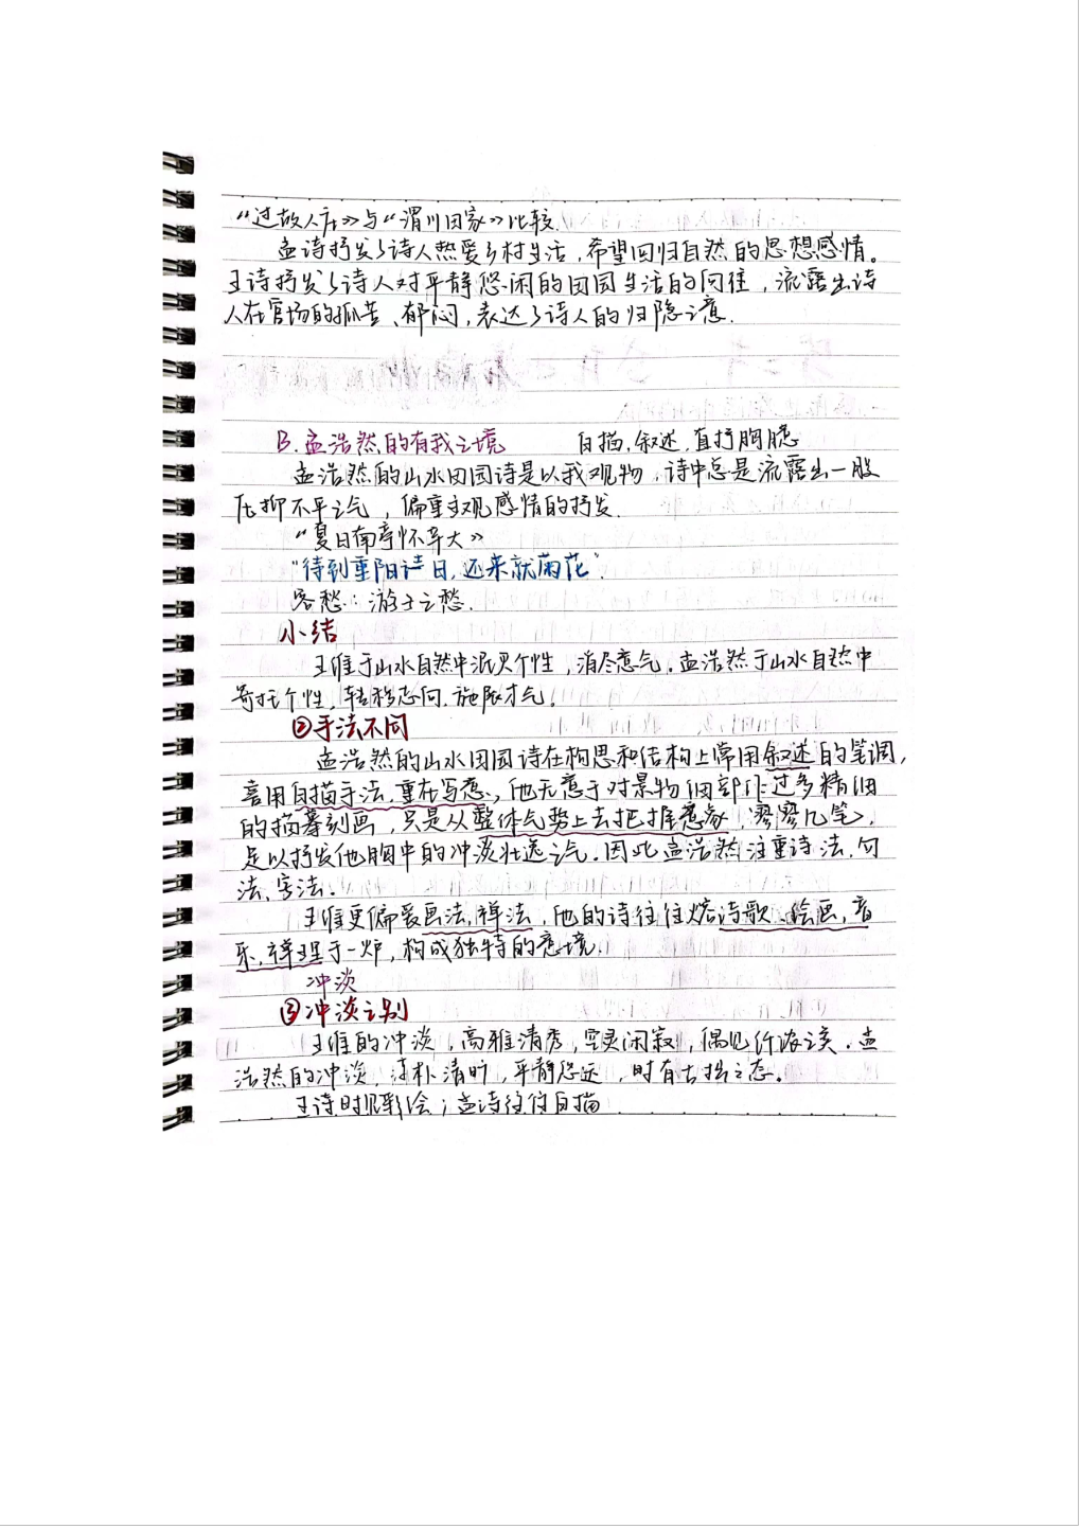 《过故人庄》与《渭川田家》比较.
孟诗抒发了诗人热爱乡村生活，希望回归自然的思想感情。
王诗抒发了诗人对平静悠闲的田园生活的向往，流露出诗
人在官场的孤苦、郁闷，表达了诗人的归隐之意.
B.孟浩然的有我之境 白描.叙述.直抒胸臆
孟浩然的山水田园诗是以我观物，诗中总是流露出一股
压抑不平之气，偏重主观感情的抒发.
《夏日南亭怀辛大》
"待到重阳日，还来就菊花"
客愁：游子之愁.
小结
王维于山水自然中泯灭个性，消尽意气.孟浩然于山水自然中
寄托个性，转移志向.施展才气.
②手法不同
孟浩然的山水田园诗在构思和结构上常用叙述的笔调，
喜用白描手法，重在写意，他无意于对景物细部作过多精细
的描摹刻画，只是从整体气势上去把握意象，寥寥几笔，
足以抒发他胸中的冲淡壮逸之气.因此孟浩然注重诗法.句
法、字法.
王维更偏爱画法，禅法，他的诗往往熔诗歌、绘画，音
乐，禅理于一炉，构成独特的意境.
冲淡
③冲淡之别
王维的冲淡，高雅清秀，空灵闲寂，偶见纤浓之美.孟
浩然的冲淡，淳朴清旷，平静悠远，时有古拙之态.
王诗时见彩绘；孟诗往往白描